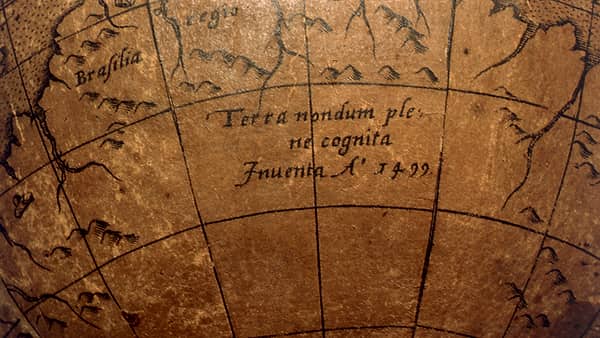 regio
Brasilia
Terra nondum ple:
ne cognita
Inventa A° 1499